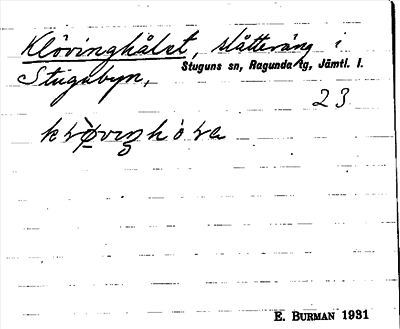 Klövinghålet, slåtteräng i
Stuguns sn, Ragunda tg, Jämtl. l.
Stugubyn,
23
E. BURMAN 1931